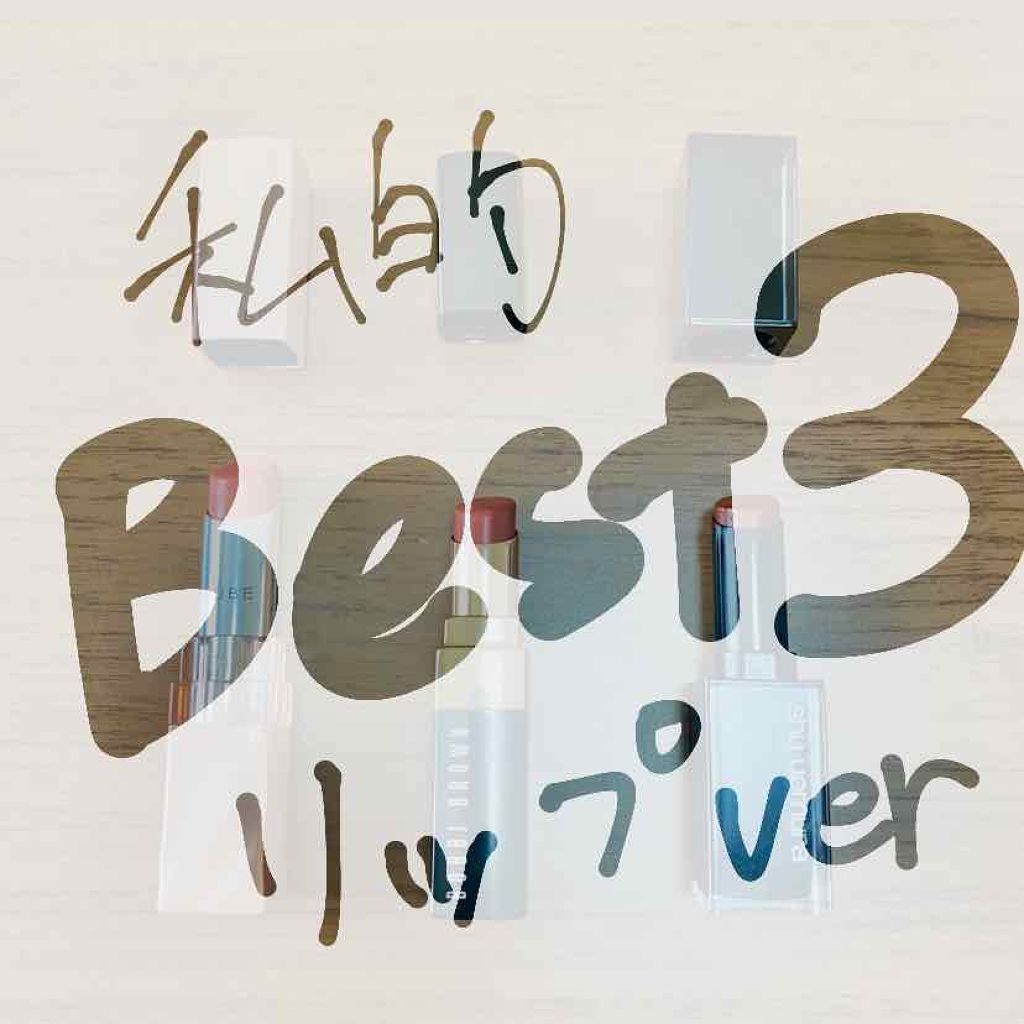 私的
Best3
リップver
UBE
BOBBI BROWN
shu uemura